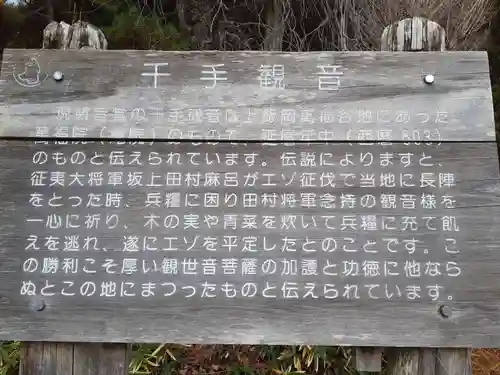 千手観音
観音堂の千手観音は上飯岡萬福谷地にあった
萬福院（ ）のもので、延暦年中（西暦803）
のものと伝えられています。伝説によりますと、
征夷大将軍坂上田村麻呂がエゾ征伐で当地に長陣
をとった時、兵糧に困り田村将軍念持の観音様を
一心に祈り、木の実や青菜を炊いて兵糧に充て飢
えを逃れ、遂にエゾを平定したとのことです。こ
の勝利こそ厚い観世音菩薩の加護と功徳に他なら
ぬとこの地にまつったものと伝えられています。